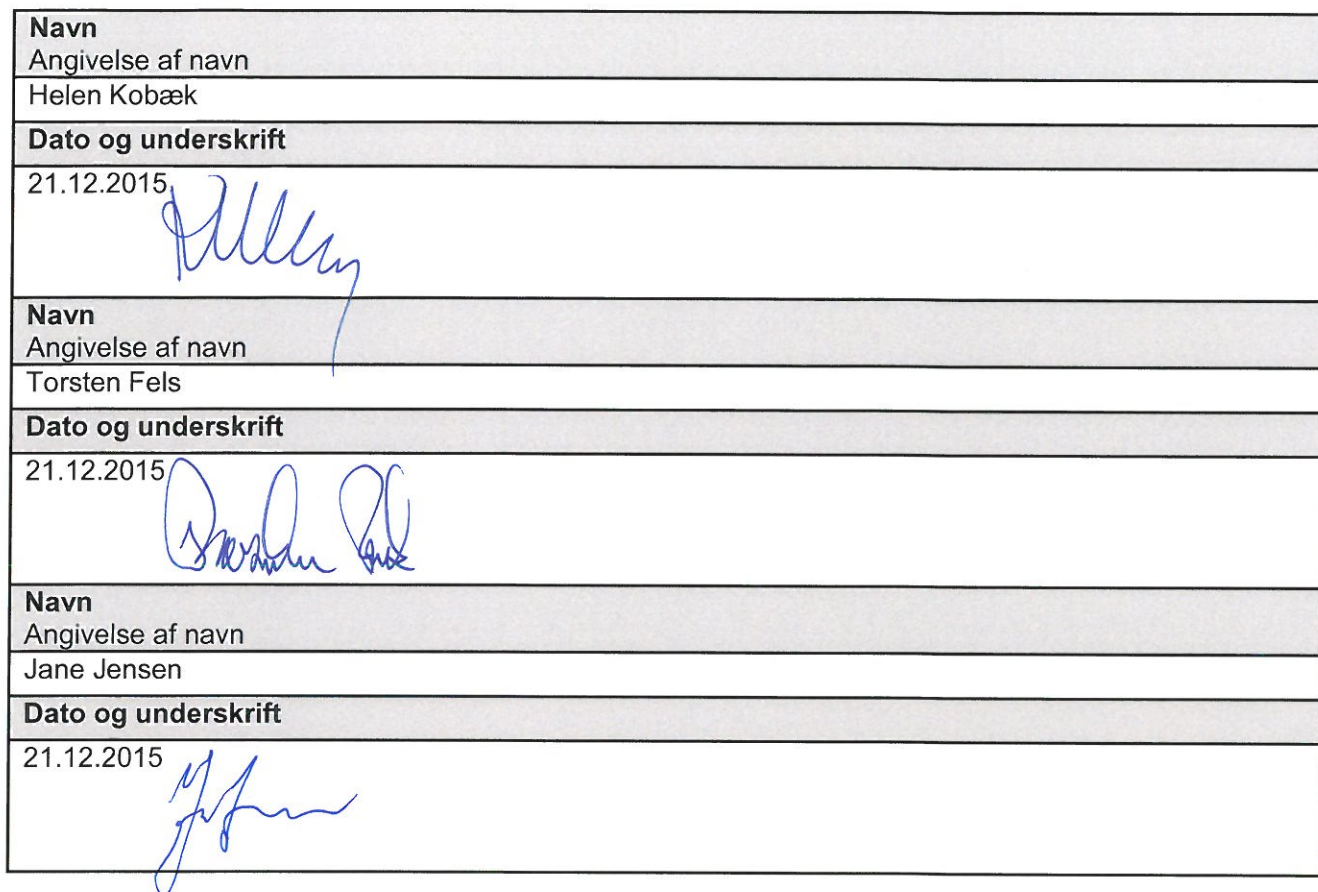 Navn
Angivelse af navn
Helen Kobæk
Dato og underskrift
21.12.2015
Navn
Angivelse af navn
Torsten Fels
Dato og underskrift
21.12.2015
Navn
Angivelse af navn
Jane Jensen
Dato og underskrift
21.12.2015